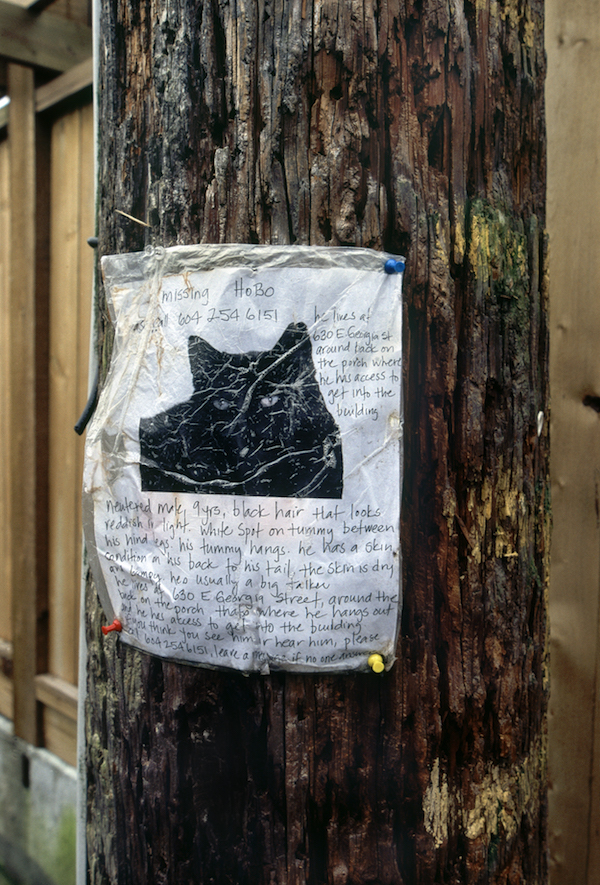 missing HoBo
call 604 254 6151
he lives at
630 E. Georgia St
around back on
the porch where
he has access to
get into the
building
neutered male, 9yrs, black hair that looks
reddish in light. white spot on tummy between
his hind legs, his tummy hangs. he has a skin
condition on his back to his tail, the skin is dry
and bumpy. he's usually a big talker
he lives at 630 E. Georgia Street, around the
back on the porch thats where he hangs out
and he has access to get into the building
if you think you see him or hear him, please
call 604 254 6151, leave a if no one